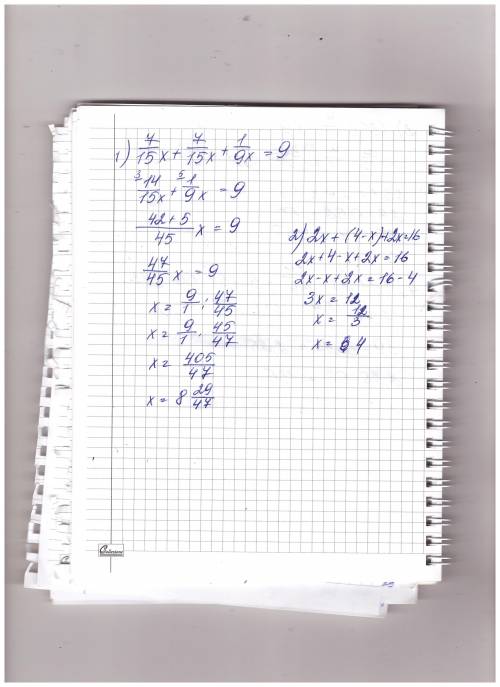 1) 7/15 x + 7/15 x + 1/9x = 9
3 14/15x + 5 1/9x = 9
42+5/45 x = 9
47/45 x = 9
x = 9/1 : 47/45
x = 9/1 · 45/47
x = 405/47
x = 8 29/47
2) 2x + (4-x)+2x=16
2x+4-x+2x=16
2x-x+2x=16-4
3x=12
x= 12/3
x= 4